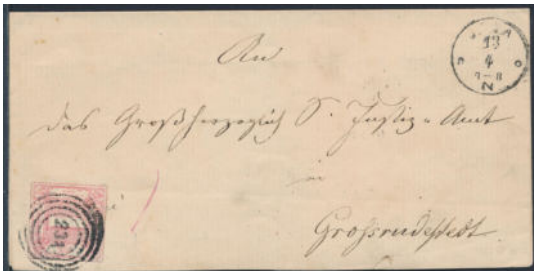 An
13
4
7-8
N
das Großherzoglich S. Justiz-Amt
in
Großrudestedt.
231